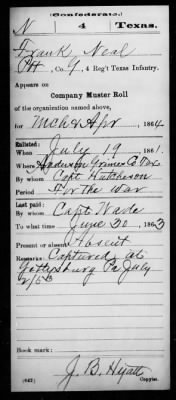 (Confederate.)
N 4 Texas.
Frank Neal
Pvt, Co. G, 4 Reg't Texas Infantry.
Appears on
Company Muster Roll
of the organization named above,
for Mch & Apr, 1864
Enlisted:
When July 19, 1861.
Where Anderson Grimes Co Tex
By whom Capt Hutcheson
Period For the war
Last paid:
By whom Capt. Wade
To what time June 30, 1863
Present or absent Absent
Remarks: Captured at
Gettysburg Pa July
2/63
Book mark:
J. B. Hyatt
(642) Copyist.